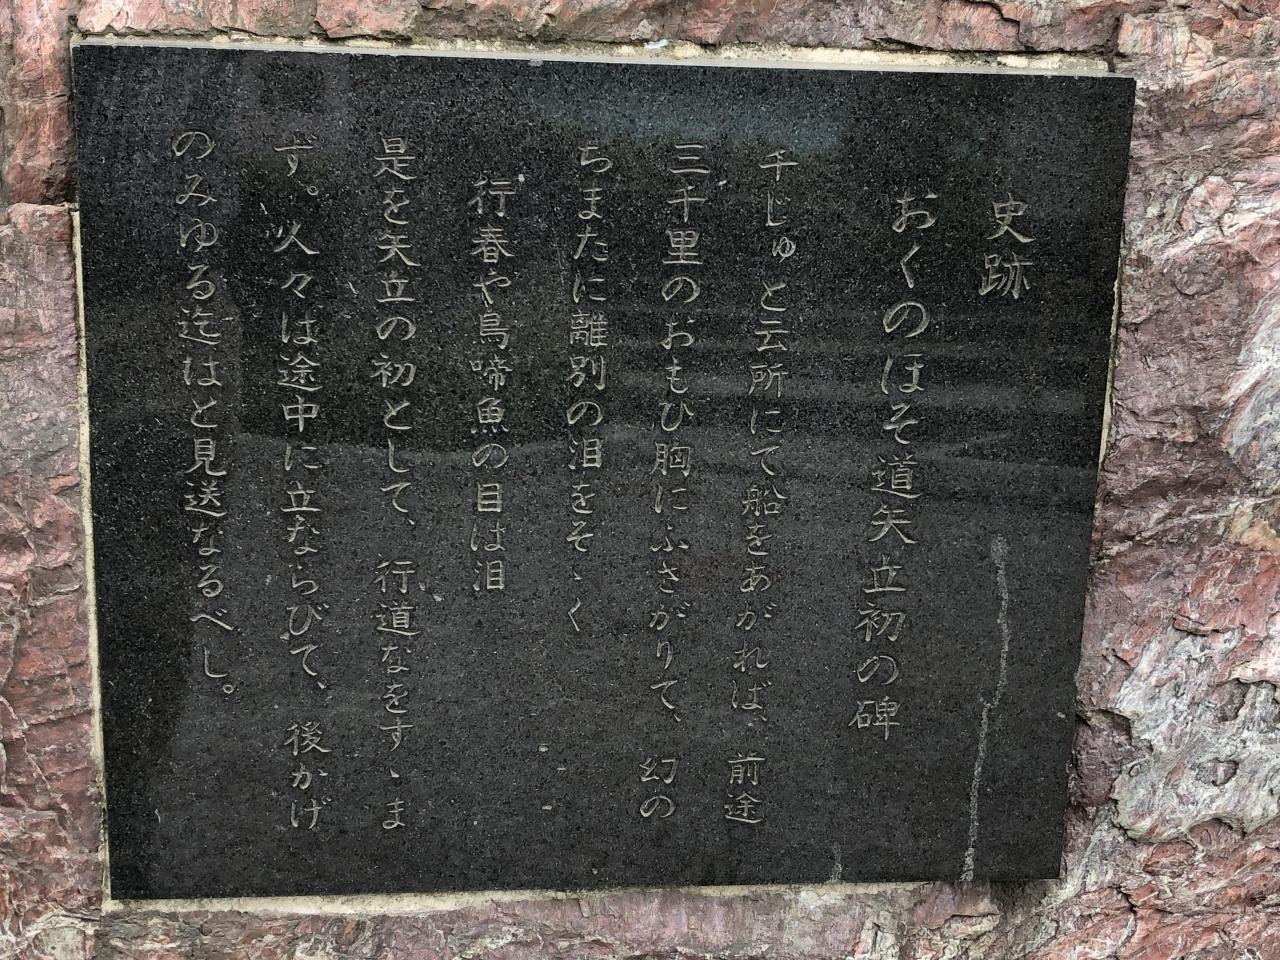 史跡
おくのほそ道矢立初の碑
千じゅと云所にて船をあがれば、前途
三千里のおもひ胸にふさがりて、幻の
ちまたに離別の泪をそゝく
行春や鳥啼魚の目は泪
是を矢立の初として、行道なをすゝま
ず。人々は途中に立ならびて、後かげ
のみゆる迄はと見送なるべし。